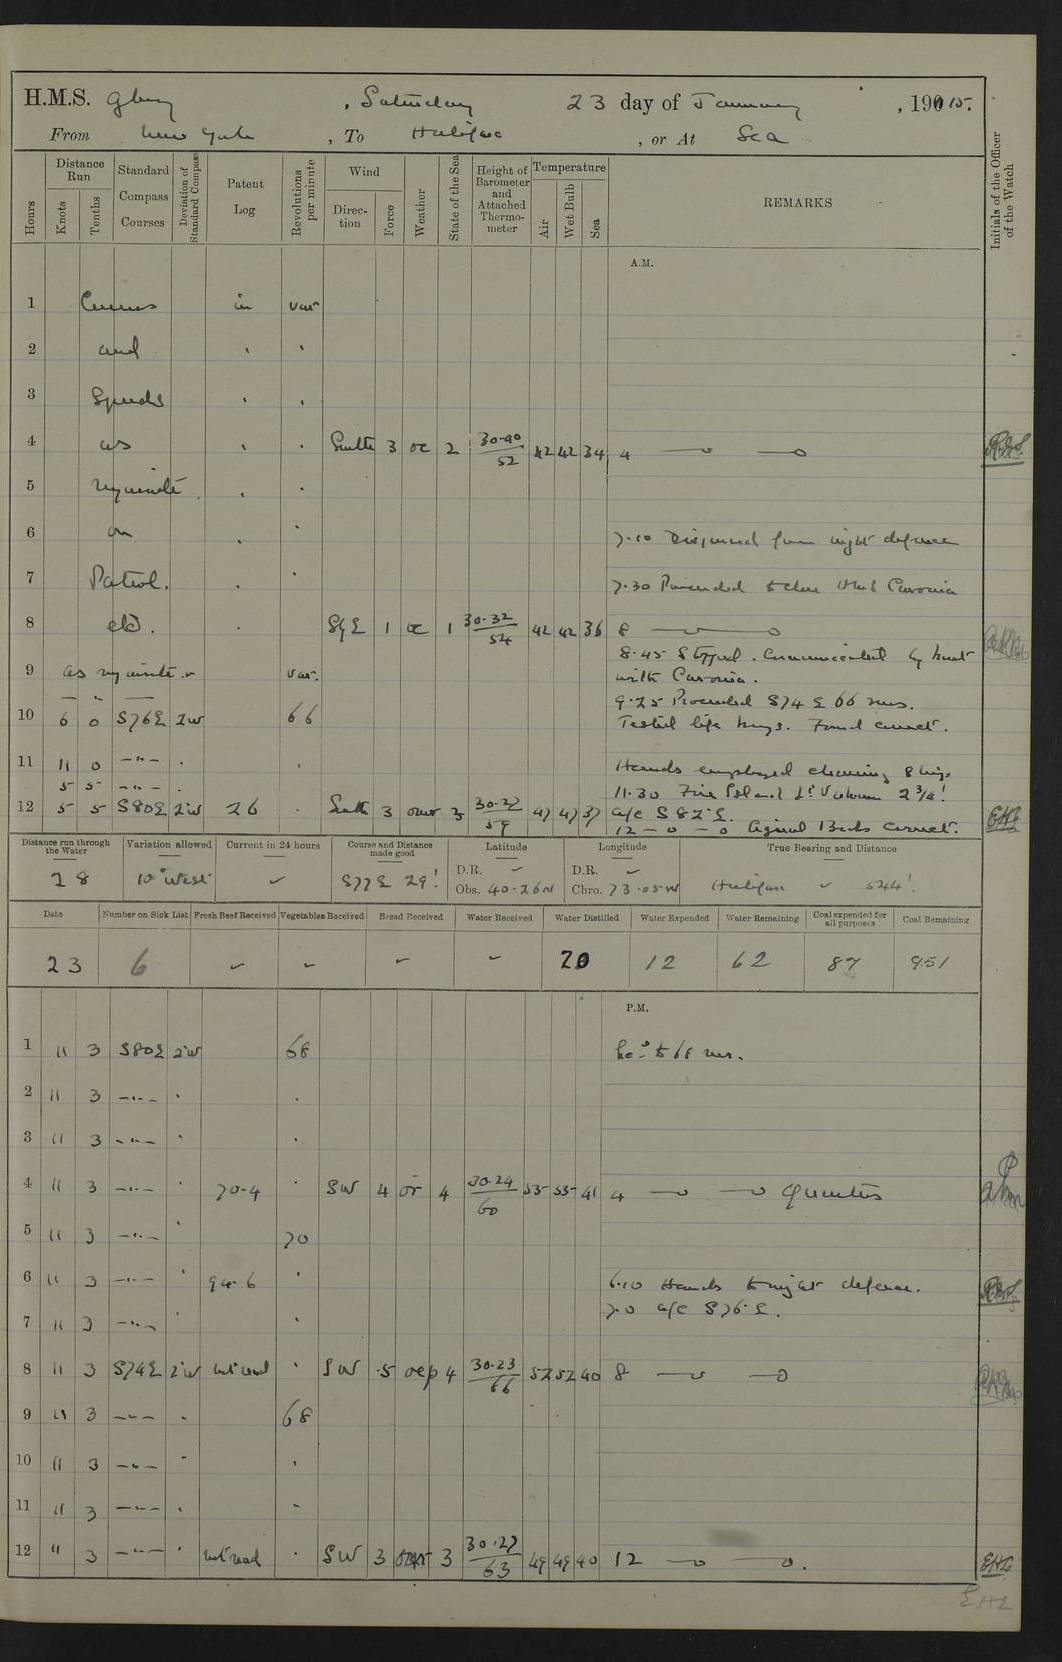 H.M.S. Glory , Saturday 23 day of January , 19015.
From New York , To Halifax , or At Sea
Hours
Distance Run
Knots
Tenths
Standard Compass Courses
Deviation of Standard Compass
Patent Log
Revolutions per minute
Wind
Direction
Force
Weather
State of the Sea
Height of Barometer and Attached Thermometer
Temperature
Air
Wet Bulb
Sea
REMARKS
Initials of the Officer of the Watch
A.M.
1 Courses in var
2 and " "
3 Speeds " "
4 as " " South 3 oc 2 30.40 / 52 42 42 34 4 —o —o
5 requisite " "
6 on " "
7.10 Dispersed from night defence
7 Patrol. " "
7.30 Proceeded to close HMS Caronia
8 etc. " SyE 1 oc 1 30.32 / 54 42 42 36 8 —o —o
8.45 Stopped. Communicated by boat
9 as requisite var.
with Caronia.
9.25 Proceeded S74E 66 revs.
10 6 0 S76E 2W 66
Tested life buoys. Found correct.
11 11 0 —"— " "
Hands employed cleaning ship
5 5 —"— "
11.30 Fire Island Lt Vessel 2¾'
12 5 5 S80E 2W 26 " South 3 3 30.27 / 59 47 47 37 a/c S82°E.
12 —o —o Books correct.
Distance run through the Water
28
Variation allowed
10° West
Current in 24 hours
✓
Course and Distance made good
S77E 29'
Latitude
D.R. ✓
Obs. 40.26N
Longitude
D.R. ✓
Chro. 73.05W
True Bearing and Distance
Halifax ✓ 544'
Date Number on Sick List Fresh Beef Received Vegetables Received Bread Received Water Received Water Distilled Water Expended Water Remaining Coal expended for all purposes Coal Remaining
23 6 ✓ ✓ ✓ ✓ 20 12 62 87 951
P.M.
1 11 3 S80E 2W 68 Inc'd to 68 revs.
2 11 3 —"— " "
3 11 3 —"— " "
4 11 3 —"— " 70.4 " SW 4 or 4 30.24 / 60 55 55 41 4 —o —o Quarters
5 11 3 —"— " 70
6 11 3 —"— " 94.6 " 6.10 Hands to night defence.
7.0 a/c S76°E.
7 11 3 —"— " "
8 11 3 S74E 2W not read " SW 5 oep 4 30.23 / 66 52 52 40 8 —o —o
9 11 3 —"— " 68
10 11 3 —"— " "
11 11 3 —"— " "
12 " 3 —"— " not read " SW 3 3 30.27 / 63 49 49 40 12 —o —o.
EHL
EHL